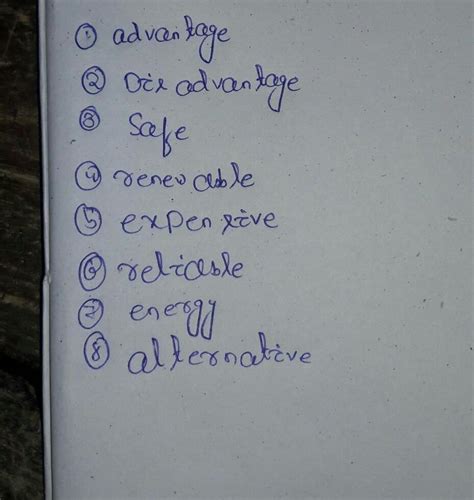 ① advantage
② Disadvantage
③ Safe
④ renewable
⑤ expensive
⑥ reliable
⑦ energy
⑧ alternative